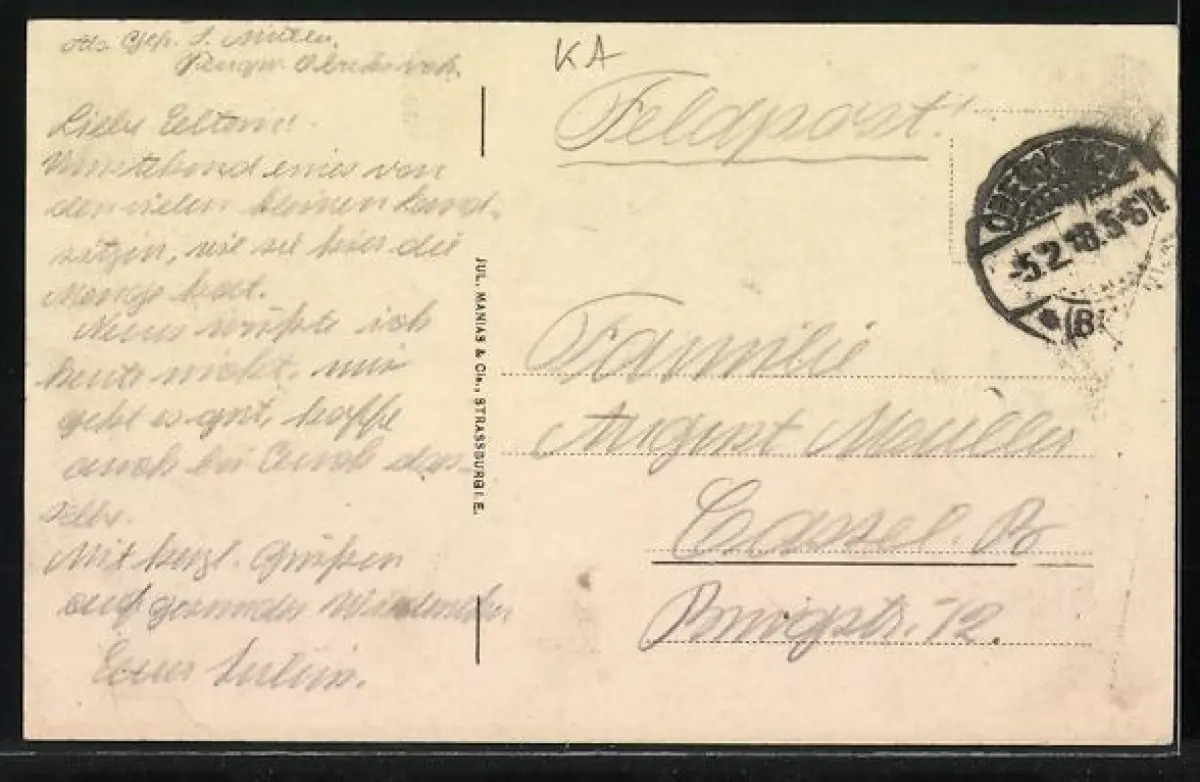 Liebe Eltern!
Umstehend eines von
den vielen kleinen Land-
sitzen, wie sie hier die
Menge hat.
Neues wüßte ich
heute nicht, mir
geht es gut, hoffe
auch bei Euch das-
selbe.
Mit herzl. Grüßen
auf gesundes Wiedersehn
Euer
KA
Feldpost!
-5.2.18.5-6N
(B
JUL. MANIAS & Cie., STRASSBURG I. E.
Familie
August Müller
Cassel. B
12.